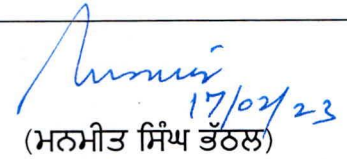 17/02/23
(ਮਨਮੀਤ ਸਿੰਘ ਭੱਠਲ)